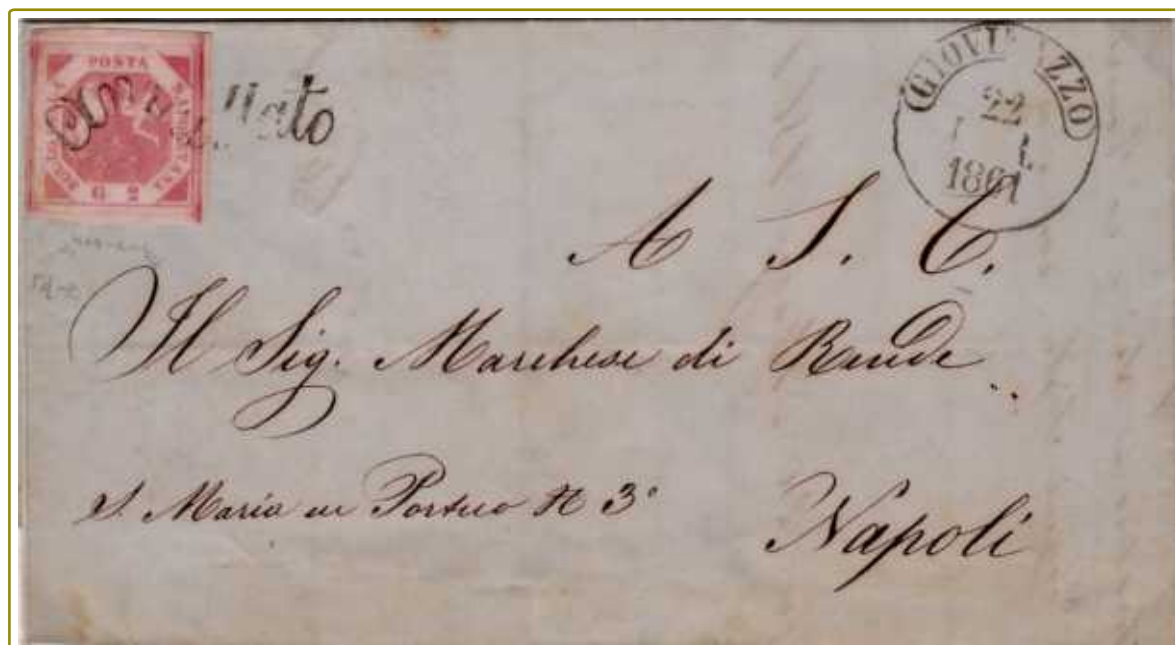 POSTA NAPOLETANA
G 2
GIOVI ZZO
22
1861
A S. E.
Il Sig. Marchese di Rende
S. Maria in Portico N 3°
Napoli